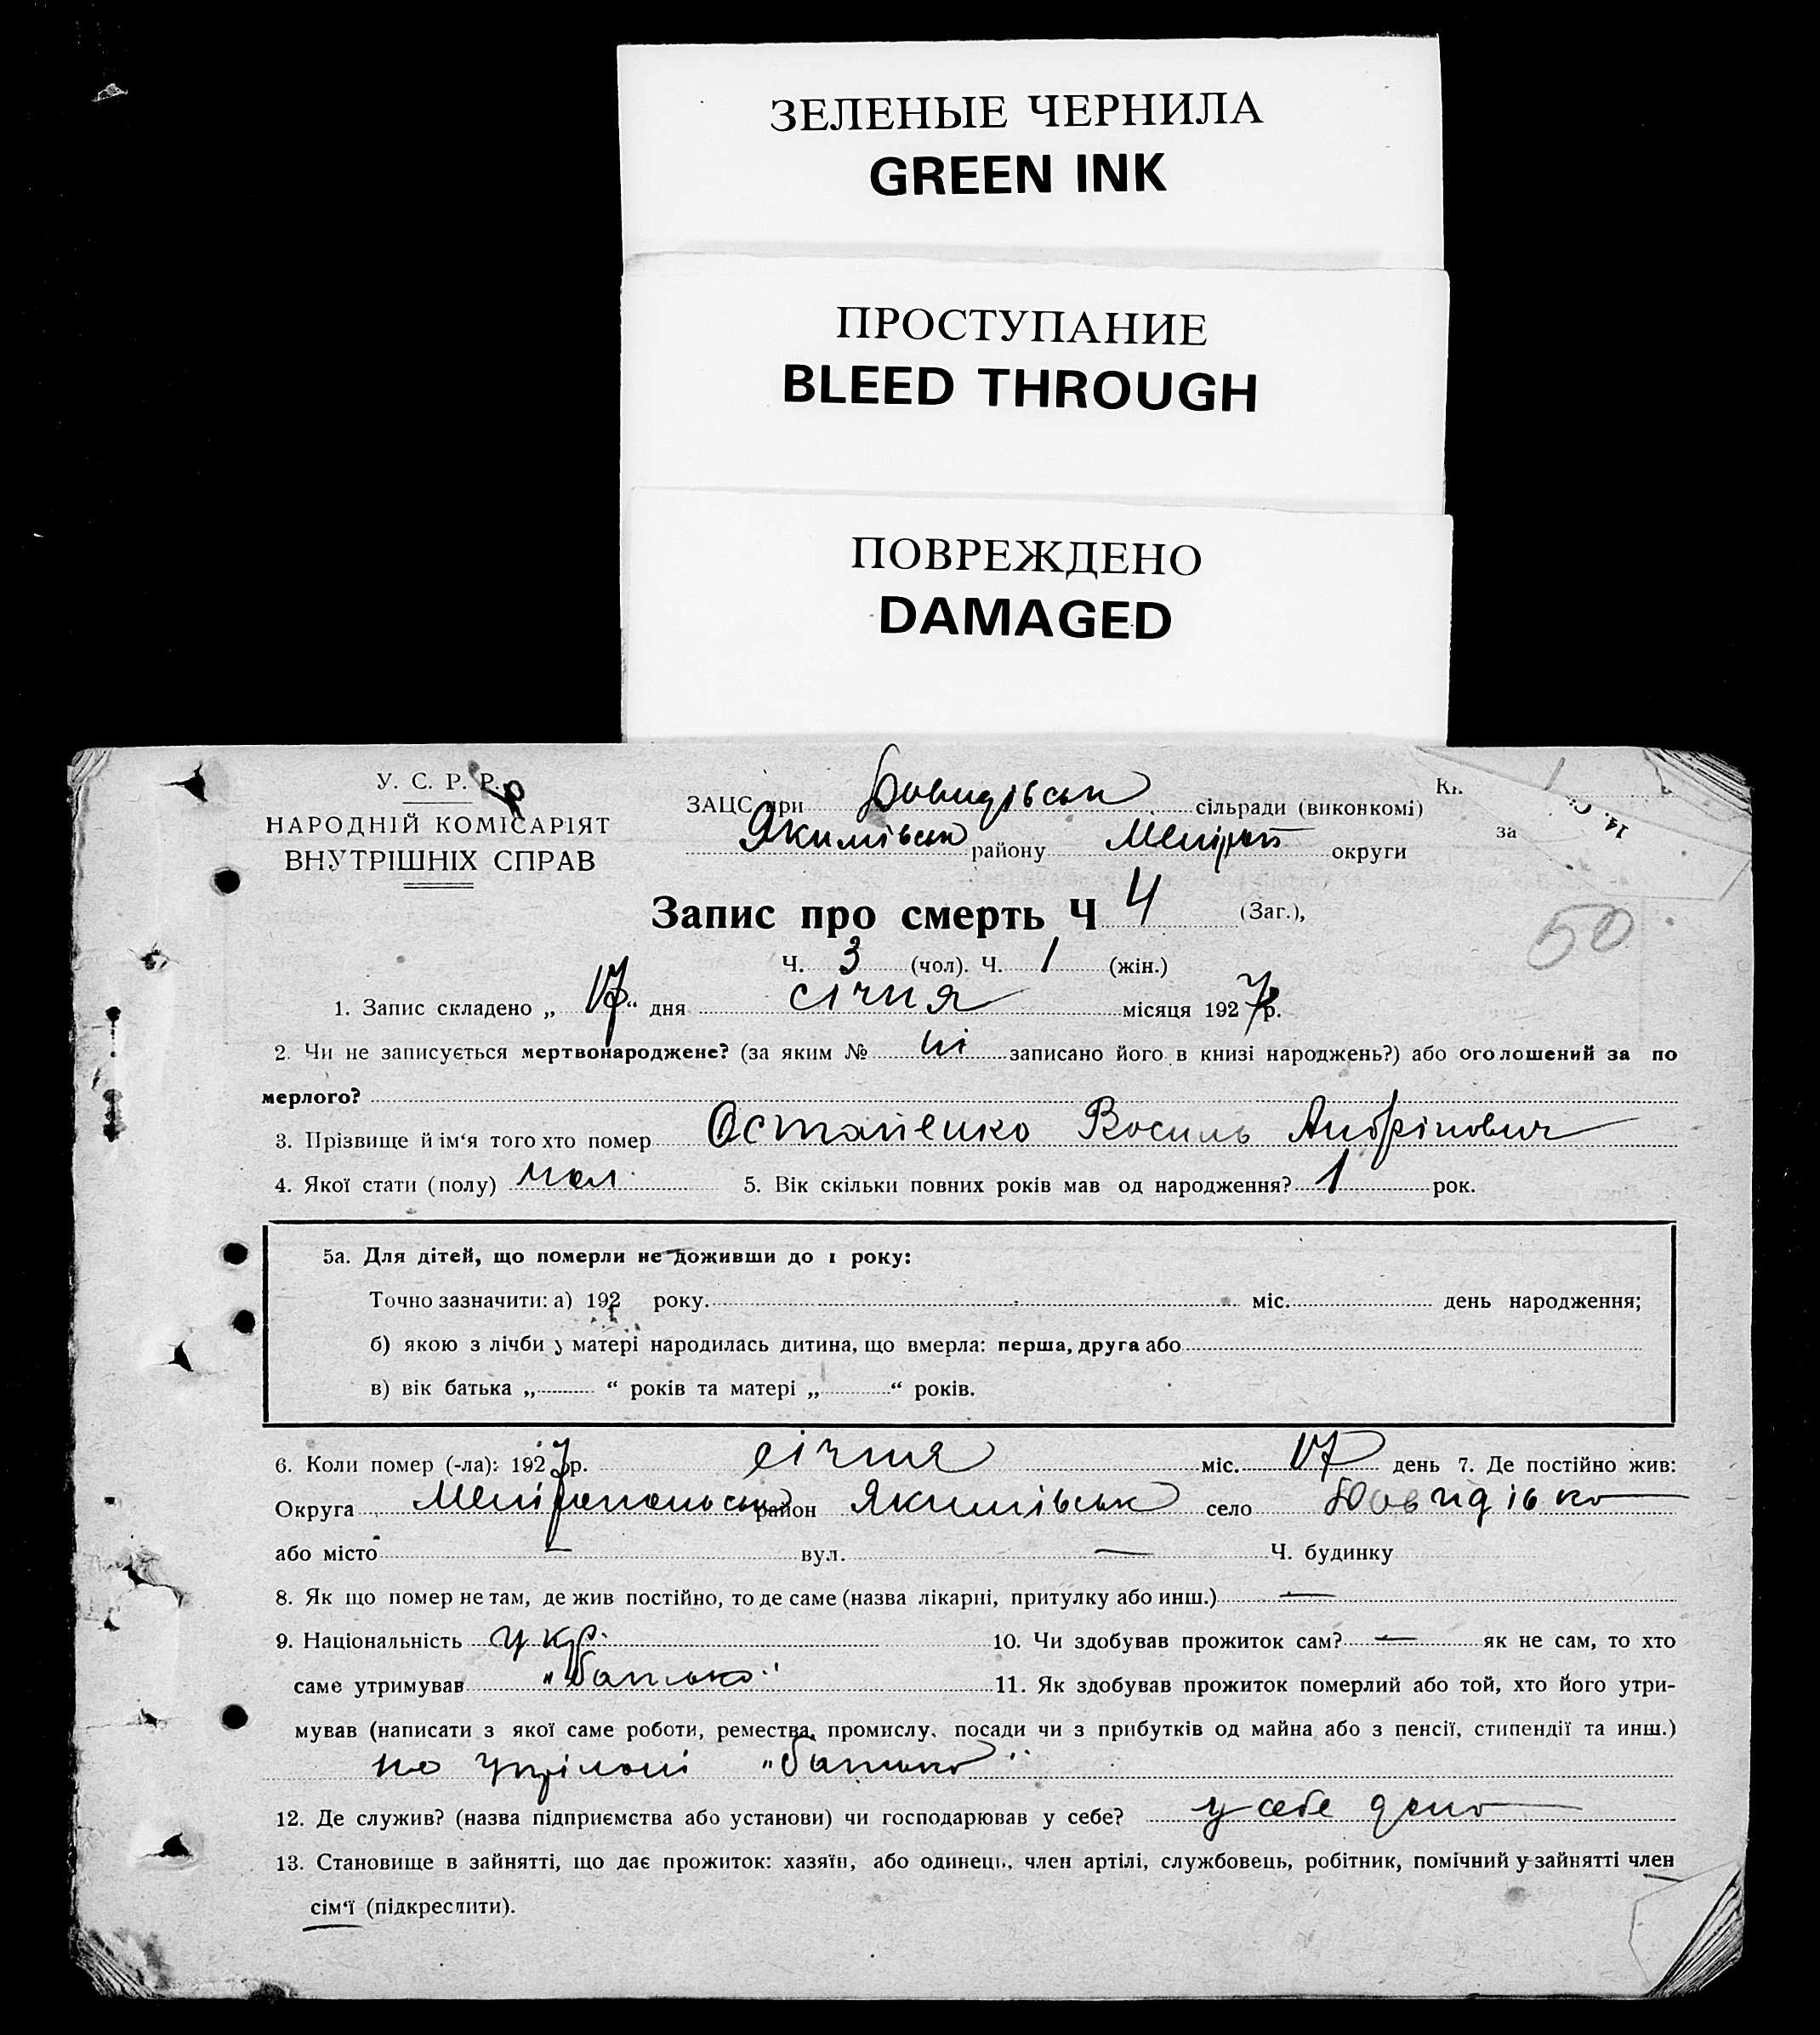 ЗЕЛЕНЫЕ ЧЕРНИЛА
GREEN INK
ПРОСТУПАНИЕ
BLEED THROUGH
ПОВРЕЖДЕНО
DAMAGED
У. С. Р. Р.
НАРОДНІЙ КОМІСАРІЯТ
ВНУТРІШНІХ СПРАВ
ЗАЦС при Давидівськ сільради (виконкомі)
Якимівськ району округи
за
14.
Запис про смерть Ч 4 (Заг.),
50
Ч. 3 (чол). Ч. 1 (жін.)
1. Запис складено „ 17 “ дня січня місяця 1927 р.
2. Чи не записується мертвонароджене? (за яким № ні записано його в книзі народжень?) або оголошений за по
мерлого?
3. Прізвище й ім'я того хто помер Остапенко Василь Андрійович
4. Якої стати (полу) чол. 5. Вік скільки повних років мав од народження? 1 рок.
5а. Для дітей, що померли не доживши до 1 року:
Точно зазначити: а) 192 року. міс. день народження;
б) якою з лічби у матері народилась дитина, що вмерла: перша, друга або
в) вік батька „ “ років та матері „ “ років.
6. Коли помер (-ла): 1927 р. січня міс. 17 день 7. Де постійно жив:
Округа Мелітопольськ район Якимівськ село Давидівка
або місто — вул. — Ч. будинку
8. Як що помер не там, де жив постійно, то де саме (назва лікарні, притулку або инш.) —
9. Національність укр. 10. Чи здобував прожиток сам? — як не сам, то хто
саме утримував „батько“ 11. Як здобував прожиток померлий або той, хто його утри-
мував (написати з якої саме роботи, ремества, промислу, посади чи з прибутків од майна або з пенсії, стипендії та инш.)
„батько“
12. Де служив? (назва підприємства або установи) чи господарював у себе? у себе дома
13. Становище в зайнятті, що дає прожиток: хазяїн, або одинець, член артілі, службовець, робітник, помічний у зайнятті член
сім'ї (підкреслити).